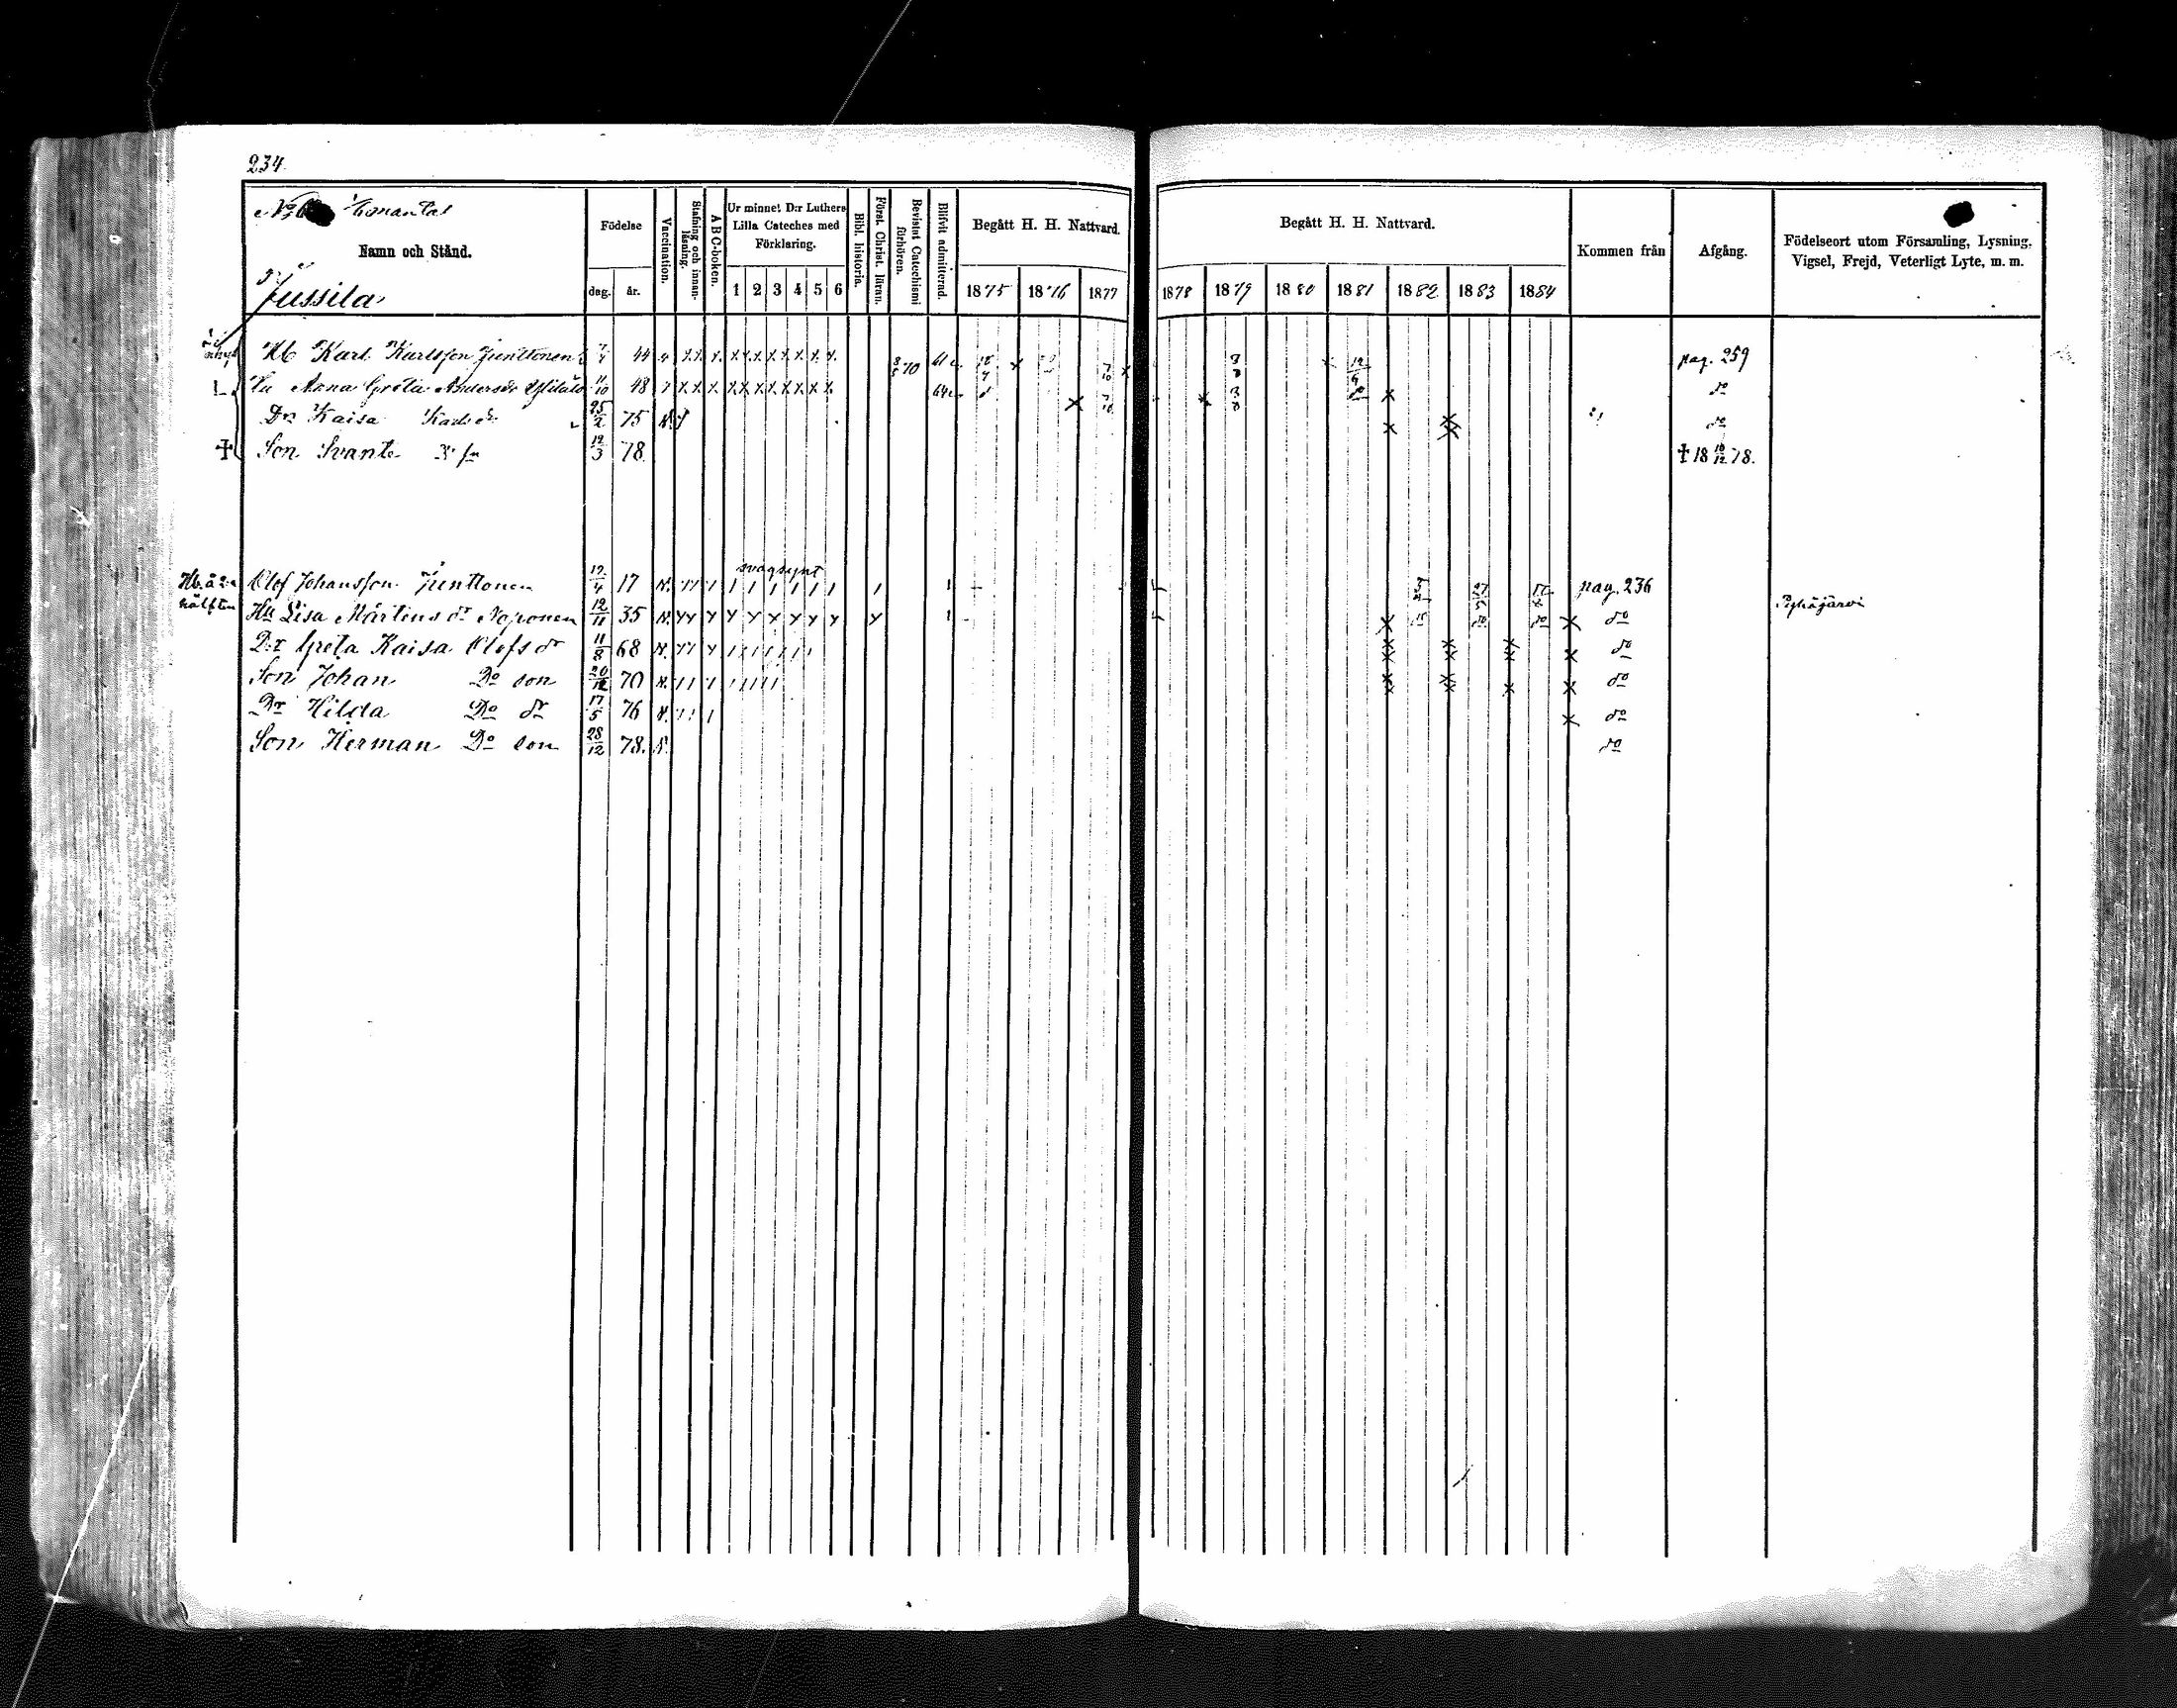 234.
Namn och Stånd.
Jussila
Födelse
dag. år.
Vaccination.
Stafning och innanläsning.
A B C-boken.
Ur minnet D:r Luthers Lilla Cateches med Förklaring.
1 2 3 4 5 6
Bibl. historia.
Först. Christ. läran.
Bevistat Catechismi förhören.
Blifvit admitterad.
Begått H. H. Nattvard.
1875 1876 1877
Begått H. H. Nattvard.
1878 1879 1880 1881 1882 1883 1884
Kommen från
Afgång.
Födelseort utom Församling, Lysning, Vigsel, Frejd, Veterligt Lyte, m. m.
Hb Karl Karlsson Junttonen 44 8/5 70 pag. 259
Anna Greta Andersdr 11/10 48 do
Dr Kaisa Karlsdr 25/2 75 do
Son Svante 12/3 78 † 18 10/12 78.
Hb. å 2:a hälften
svagsynt
Olof Johansson Junttonen 12/4 17 pag. 236
Hu Lisa Mårtens dr Noponen 12/11 35 do Pyhäjärvi
D:r Greta Kaisa Olofs dr 11/8 68 do
Son Johan Do son 20/12 70 do
Dr Hilda Do dr 17/5 76 do
Son Herman Do son 28/12 78. do